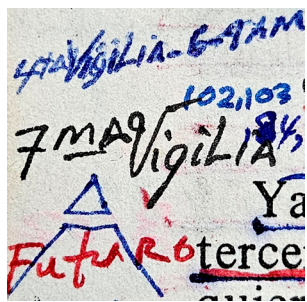 4TA Vigilia - 6-9 AM
102,103
7 MAq Vigilia 184,
Ya
FuTuRO terce